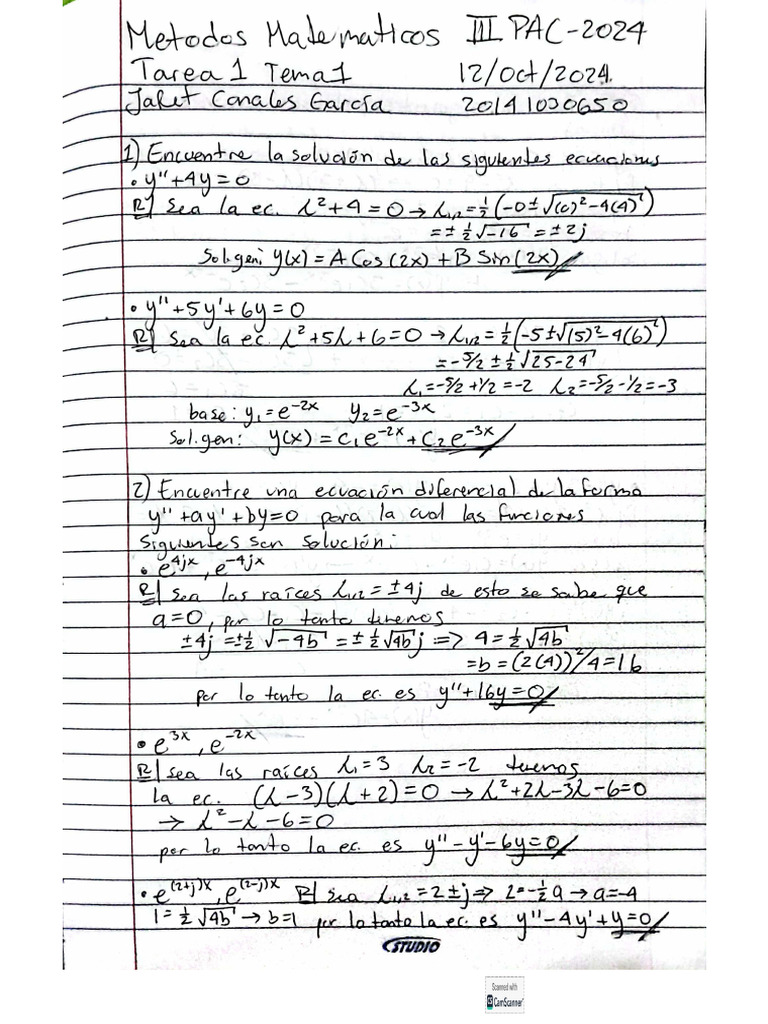 Metodos Matematicos III PAC-2024
Tarea 1 Tema 1 12/Oct/2024.
Jafet Canales García 20141030650
1) Encuentre la solución de las siguientes ecuaciones
• y''+4y=0
R| Sea la ec. λ²+4=0 → λ₁,₂=½(-0±√((0)²-4(4)))
=±½√-16=±2j
Sol.gen: y(x)=A Cos(2x)+B Sin(2x)//
• y''+5y'+6y=0
R| Sea la ec. λ²+5λ+6=0 → λ₁/₂=½(-5±√((5)²-4(6)))
=-5/2±½√25-24
λ₁=-5/2+1/2=-2 λ₂=-5/2-1/2=-3
base: y₁=e⁻²ˣ y₂=e⁻³ˣ
Sol.gen: y(x)=c₁e⁻²ˣ+c₂e⁻³ˣ//
2) Encuentre una ecuación diferencial de la forma
y''+ay'+by=0 para la cual las funciones
siguientes son solución:
• e^4jx, e^-4jx
R| Sea las raíces λ₁,₂=±4j de esto se sabe que
a=0, por lo tanto tenemos
±4j=±½√-4b=±½√4b j => 4=½√4b
=b=(2(4))²/4=16
por lo tanto la ec. es y''+16y=0//
• e^3x, e^-2x
R| Sea las raíces λ₁=3 λ₂=-2 tenemos
la ec. (λ-3)(λ+2)=0 → λ²+2λ-3λ-6=0
→ λ²-λ-6=0
por lo tanto la ec. es y''-y'-6y=0//
• e^(2+j)x, e^(2-j)x R| Sea λ₁,₂=2±j => 2=-½a → a=-4
1=½√4b → b=1 por lo tanto la ec. es y''-4y'+y=0//
STUDIO
Scanned with
CS CamScanner